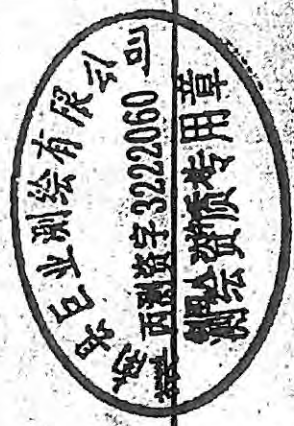 县巨业测绘有限公司
丙测资字3222060
测绘资质专用章